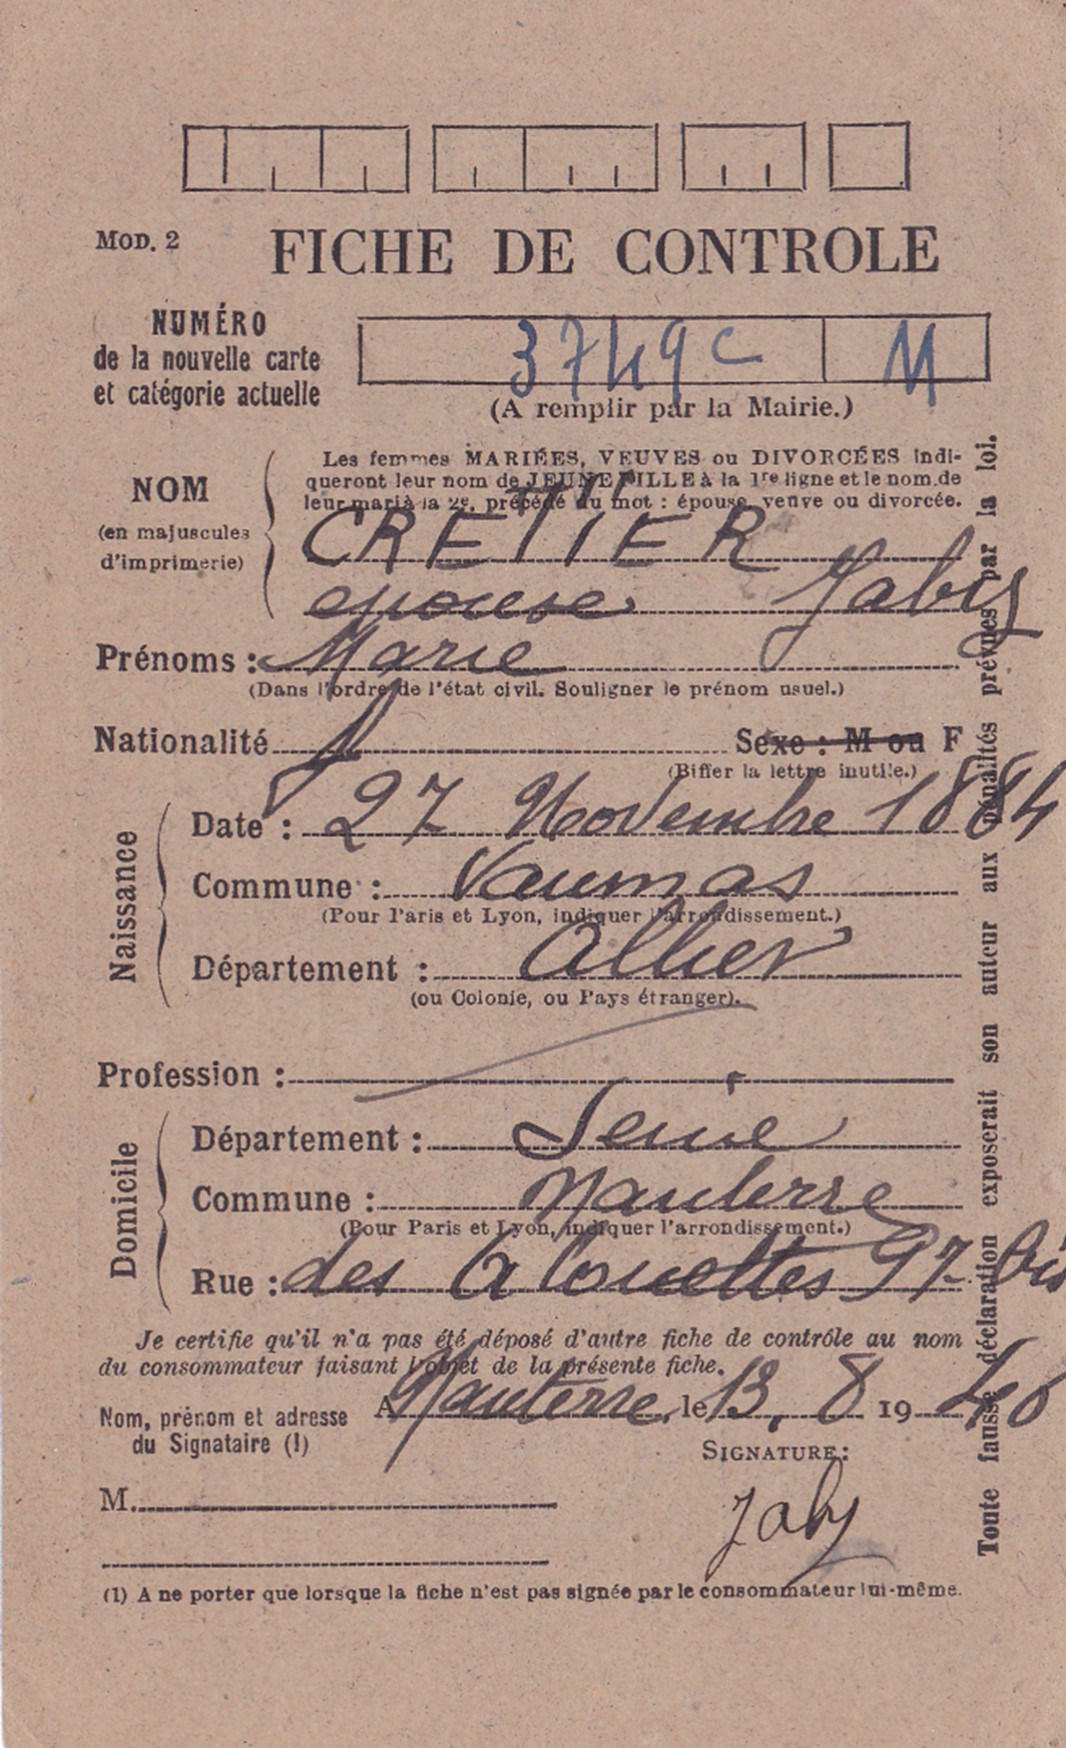 MOD. 2
FICHE DE CONTROLE
NUMÉRO
de la nouvelle carte
et catégorie actuelle
3749 C M
(A remplir par la Mairie.)
NOM
(en majuscules
d'imprimerie)
Les femmes MARIÉES, VEUVES ou DIVORCÉES indi-
queront leur nom de JEUNE FILLE à la 1re ligne et le nom de
leur mari à la 2e, précédé du mot : épouse, veuve ou divorcée.
CRETTIER
epouse
Prénoms : Marie
(Dans l'ordre de l'état civil. Souligner le prénom usuel.)
Nationalité f Sexe : M ou F
(Biffer la lettre inutile.)
Naissance
Date : 27 Novembre 1884
Commune : Vaumas
(Pour Paris et Lyon, indiquer l'arrondissement.)
Département : Allier
(ou Colonie, ou Pays étranger).
Profession :
Domicile
Département : Seine
Commune : Nanterre
(Pour Paris et Lyon, indiquer l'arrondissement.)
Rue : des Alouettes 97 bis
Je certifie qu'il n'a pas été déposé d'autre fiche de contrôle au nom
du consommateur faisant l'objet de la présente fiche.
A Nanterre, le 13, 8 19 46
Nom, prénom et adresse
du Signataire (1)
SIGNATURE :
M.
(1) A ne porter que lorsque la fiche n'est pas signée par le consommateur lui-même.
Toute fausse déclaration exposerait son auteur aux pénalités prévues par la loi.